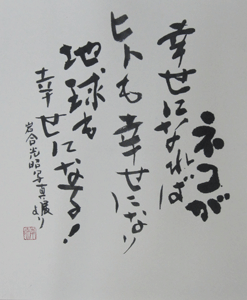 ネコが
幸せになれば
ヒトも幸せになり
地球も
幸せになる！
岩合光昭写真展より